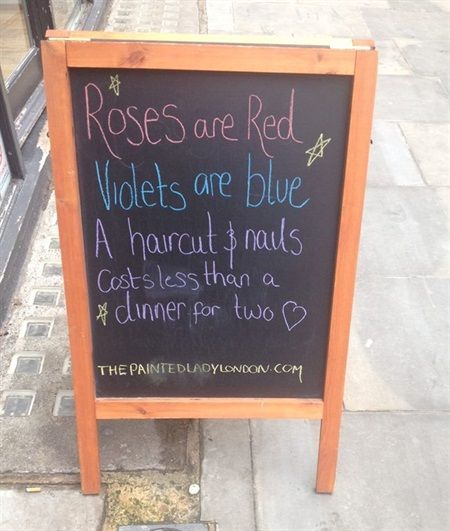 Roses are Red
Violets are blue
A haircut & nails
Costs less than a
dinner for two
THEPAINTEDLADYLONDON.COM